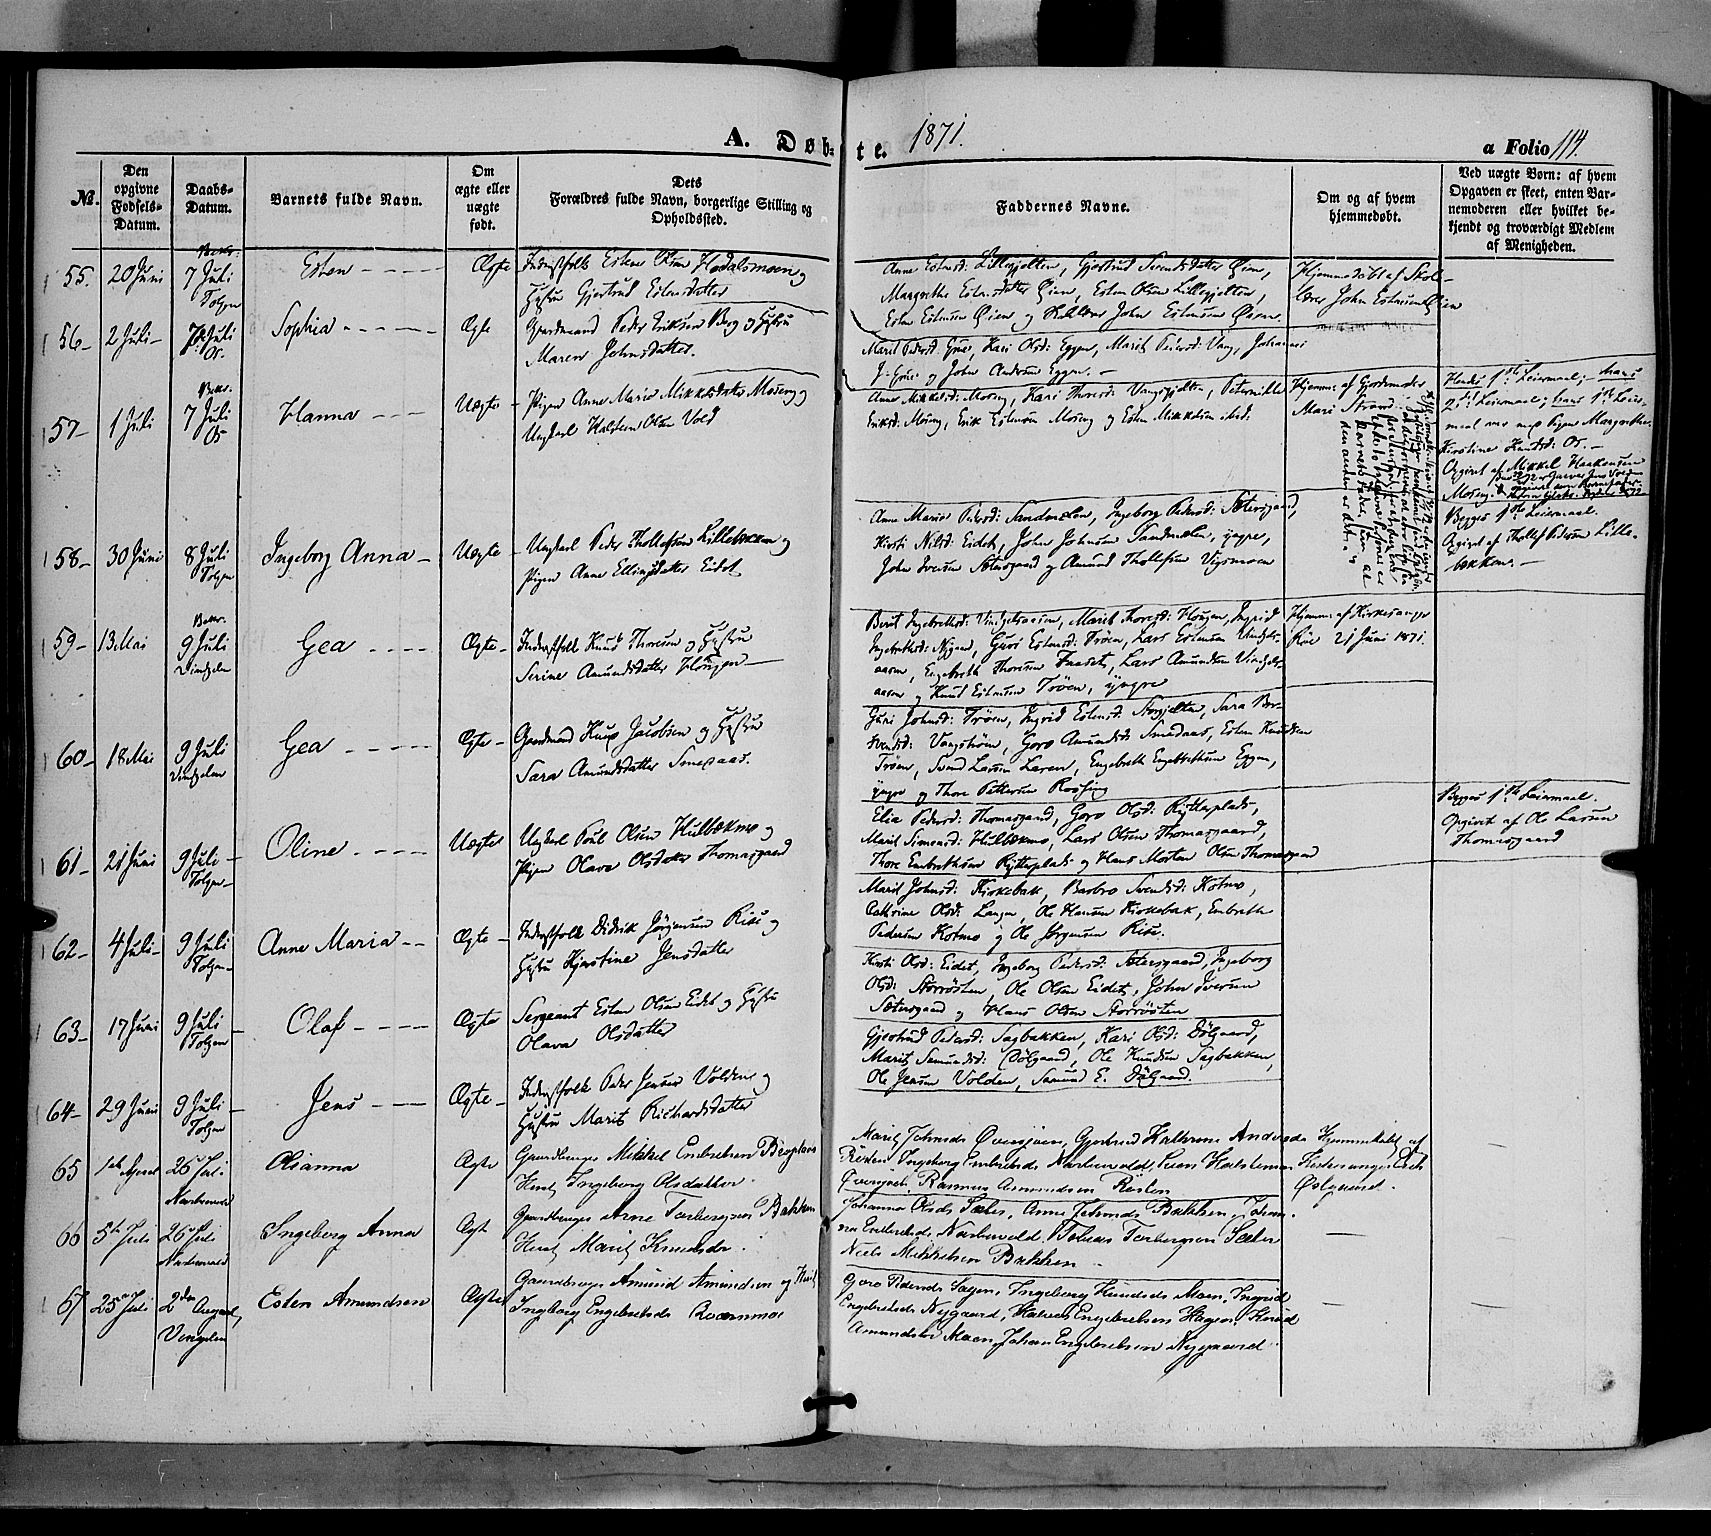 A. Døb-te. 1871.
a Folio 114.
No.
Den opgivne Fødsels-Datum.
Daabs-Datum.
Barnets fulde Navn.
Om ægte eller uægte født.
Dets Forældres fulde Navn, borgerlige Stilling og Opholdssted.
Faddernes Navne.
Om og af hvem hjemmedøbt.
Ved uægte Børn: af hvem Opgaven er skeet, enten Barnemoderen eller hvilket bekjendt og troværdigt Medlem af Menigheden.
55. 20 Juni 7 Juli Tolgen Esten Ægte
Inderstfolk Esten Olsen Hodalsmoen og
Hustru Gjertrud Estensdatter
Anne Estensd: Lillegjelten, Gjertrud Svendsdatter Øien,
Margrethe Estensdatter Øien, Esten Olsen Lillegjelten,
Esten Estensen Øien og John Estensen Øien.
Hjemmedøbt af Skole-
lærer John Estensen Øien
56 2 Juli Juli Os. Sophia Ægte
Gaardmand Peder Eriksen Berg og Hustru
Maren Johnsdatter.
Marit Pedersd: Kari Olsd: Eggen, Marit Pedersd: Vang, Johannes
og John Andersen Eggen.
57 1 Juli 7 Juli Os Hanna Uægte
Pigen Anne Marie Mikkelsdatter Moseng og
Ungkarl Halsten Olsen Vold
Anne Mikkelsd: Moseng, Kari Thoresd: Vangsgjelten, Peternille
Eriksd: Moseng, Erik Estensen Moseng og Esten Mikkelsen ibid:
Hjemme: af Gjordemoder
Mari Strand.
Hendes 1ste Leiermaal; hans
2det Leiermaal; hans 1ste Leier-
maal var med Pigen Margrethe
Kirstine Knutsd: Os.
Opgivet af Mikkel Haakensen
Moseng.
58 30 Juni 8 Juli Tolgen Ingeborg Anna Uægte
Ungkarl Peder Thollefsen Lillebækken og
Pigen Anne Ellingsdatter Eidet
Anne Marie Pedersd: Sandmælen, Ingeborg Pedersd: Sætersgaard,
Kirsti Nilsd: Eidet, John Johnsen Sandmælen, yngre,
John Iversen Sætersgaard og Amund Thollefsen Vigsmoen
Begges 1ste Leiermaal.
Opgivet af Thollef Pedersen Lille-
bækken.
59 13 Mai 9 Juli Vindgelen Gea Ægte
Inderstfolk Knud Thoresen og Hustru
Serine Amundsdatter Hougen
Berit Ingebrethsd: Vindgelsaasen, Marit Thoresd: Hougen, Ingrid
Ingebrethsd: Nygard, Guri Estensd: Trøen, Lars Estensen Vindgels-
aasen, Engebreth Thoresen Fraset, Lars Amundsen Vindgels-
aasen og Knud Estensen Trøen, yngre
Hjemme: af Kirkesanger
Røe 21 Juni 1871.
60 18 Mai 9 Juli Vindgelen Gea Ægte
Gaardmand Knud Jacobsen og Hustru
Sara Amundsdatter Smedaas.
Guri Johnsd: Trøen, Ingrid Estensd: Storgjelten, Sara Ber-
tvendsd: Vangstrøm, Goro Amundsd: Smedaas, Esten Knudsen
Trøen, Svend Larsen Laren, Engebreth Engebrethsen Eggen,
yngre og Thore Pettersen Røsing
61 21 Juni 9 Juli Tolgen Oline Uægte
Ungkarl Poul Olsen Hulbækmo og
Pigen Olava Olsdatter Thomasgaard
Elia Pedersd: Thomasgaard, Goro Olsd: Rytterplads,
Marit Simensd: Hulbækmo, Lars Olsen Thomasgaard,
Thore Embrethsen Rytterplads og Hans Morten Olsen Thomasgaard
Begges 1ste Leiermaal.
Opgivet af Ole Larsen
Thomasgaard
62 4 Juli 9 Juli Tolgen Anne Maria Ægte
Inderstfolk Didrik Jørgensen Riise og
Hustru Kjerstine Jensdatter
Marit Johnsd: Kirkebak, Barbro Svendsd: Kotmo,
Cathrine Olsd: Langen, Ole Hansen Kirkebak, Embreth
Pedersen Kotmo og Ole Jørgensen Riise.
63 17 Juni 9 Juli Tolgen Olaf Ægte
Sergeant Esten Olsen Eidet og Hustru
Olava Olsdatter
Kirsti Olsd: Eidet, Ingeborg Pedersd: Sætersgaard, Ingeborg
Olsd: Storrøsten, Ole Olsen Eidet, John Iversen
Sætersgaard og Hans Olsen Storrøsten
64 29 Juni 9 Juli Tolgen Jens Ægte
Inderstfolk Peder Jensen Volden og
Hustru Marit Richardsdatter
Gjertrud Pedersd: Sagbakken, Kari Olsd: Dølgaard,
Marit Samundsd: Dølgaard, Ole Knudsen Sagbakken,
Ole Jensen Volden, Samund E. Dølgaard.
65 1ste April 26 Juli Narbuvold Olianna Ægte
Gaardbruger Mikkel Embretsen Bergplads
Hust. Ingeborg Olsdatter.
Marit Johnsd. Øversjøen, Gjertrud Kathrine Andersd.
Røsten, Ingeborg Embretsd. Narbuvold, Iver Halstensen
Øversjøen, Rasmus Amundsen Røsten
Hjemmedøbt af
Kirkesanger Erik
Østgaard.
66 5te Juli 26 Juli Narbuvold Ingeborg Anna Ægte
Gaardbruger Arne Torbergsen Bakken
Hust. Marit Knudsdr.
Johanna Olsd. Sæter, Anne Johnsd. Bakken, Johan-
ne Embretsd. Narbuvold, Tobias Torbergsen Sæter
Niels Mikkelsen Bakken.
67 25de Juli 2den August, Vingelen Esten Amundsen Ægte
Gaardbruger Amund Amundsen og Hust.
Ingeborg Engebretsdr.
Goro Pedersd. Ingeborg Knudsd. Moen, Ingrid
Engebretsd. Nygaard, Engebretsen Hagen, Knud
Amundsen Moen, Johan Engebretsen Nygaard.